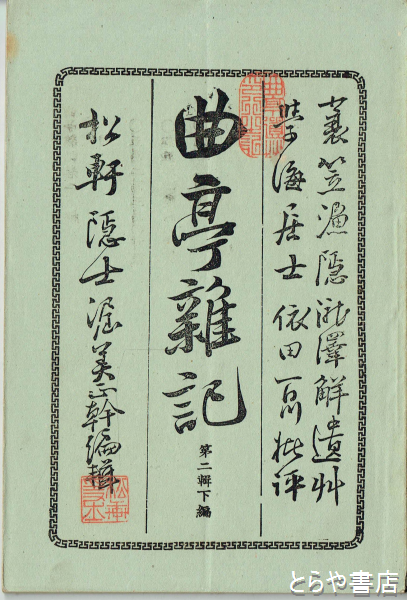 蓑笠漁隠瀧澤解遺艸
学海居士依田百川批評
曲亭雜記
第二輯下編
松軒隠士渥美正幹編輯
とらや書店